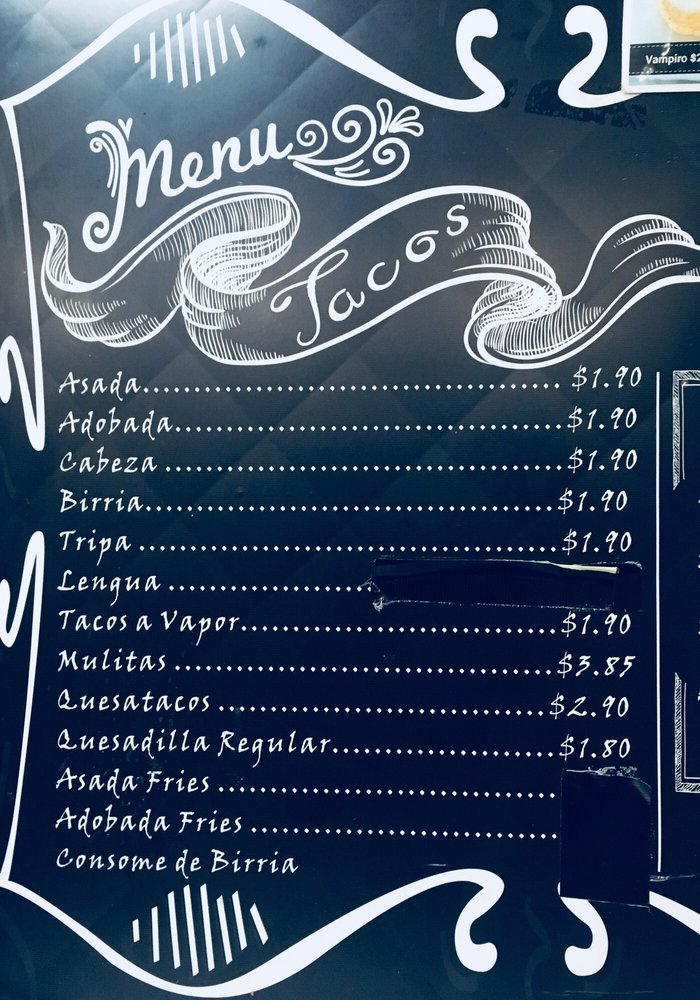 Vampiro $2
Menu
Tacos
Asada.......................................... $1.90
Adobada.......................................$1.90
Cabeza ........................................$1.90
Birria..........................................$1.90
Tripa ..........................................$1.90
Lengua .....................
Tacos a Vapor................................$1.90
Mulitas ......................................$3.85
Quesatacos .................................$2.90
Quesadilla Regular.......................$1.80
Asada Fries ..................................
Adobada Fries ..............................
Consome de Birria